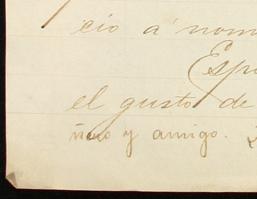 cio á nom
Esp
el gusto de
ñero y amigo.